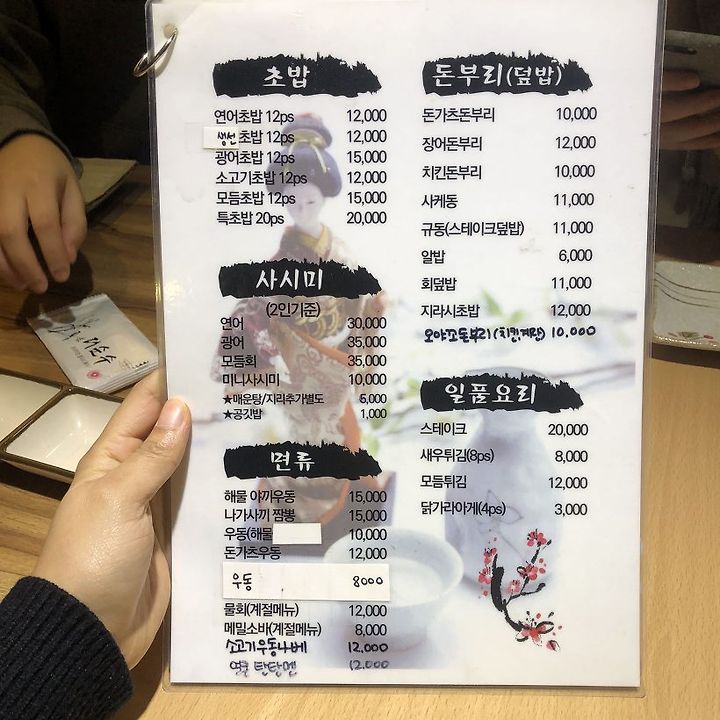 초밥
연어초밥 12ps 12,000
생선 초밥 12ps 12,000
광어초밥 12ps 15,000
소고기초밥 12ps 12,000
모듬초밥 12ps 15,000
특초밥 20ps 20,000
사시미
(2인기준)
연어 30,000
광어 35,000
모듬회 35,000
미니사시미 10,000
★매운탕/지리추가별도 5,000
★공깃밥 1,000
면류
해물 야끼우동 15,000
나가사끼 짬뽕 15,000
우동(해물 10,000
돈가츠우동 12,000
우동 8000
물회(계절메뉴) 12,000
메밀소바(계절메뉴) 8,000
소고기우동나베 12,000
탄탄멘 12.000
돈부리(덮밥)
돈가츠돈부리 10,000
장어돈부리 12,000
치킨돈부리 10,000
사케동 11,000
규동(스테이크덮밥) 11,000
알밥 6,000
회덮밥 11,000
지라시초밥 12,000
오야꼬돈부리(치킨계란) 10,000
일품요리
스테이크 20,000
새우튀김(8ps) 8,000
모듬튀김 12,000
닭가라아게(4ps) 3,000